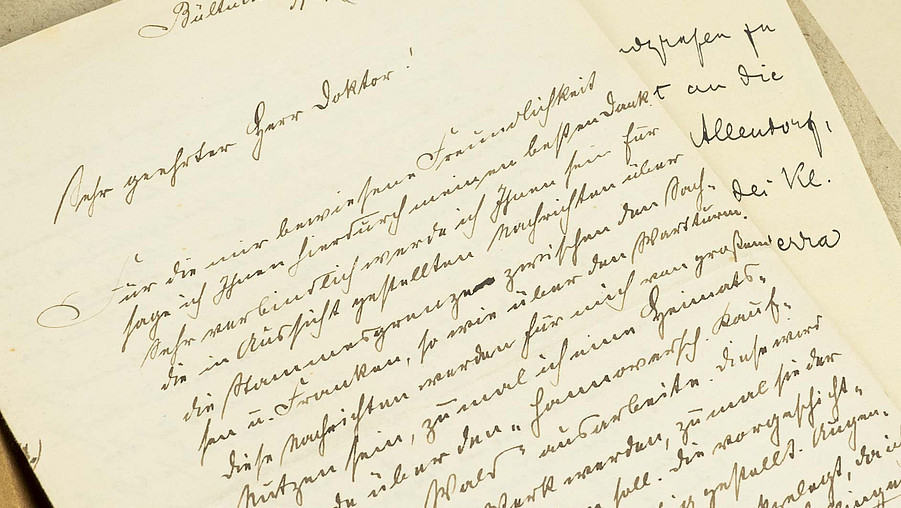 Sehr geehrter Herr Doktor!
Für die mir bewiesene Freundlichkeit
sage ich Ihnen hierdurch meinen besten Dank.
Sehr verbindlich werde ich Ihnen sein für
die in Aussicht gestellten Nachrichten über
die Stammesgrenze zwischen den Sach-
sen u. Franken, so wie über den Wartturm.
Diese Nachrichten werden für mich von großem
Nutzen sein, zumal ich eine Heimats-
de über den „Hannoversch. Kauf-
Wald" ausarbeite. Diese wird
Werk werden, zumal sie der
soll. Die vorgeschicht-
gestellt. Augen-
da in
t an die
Allendorf,
bei Kl.
erra